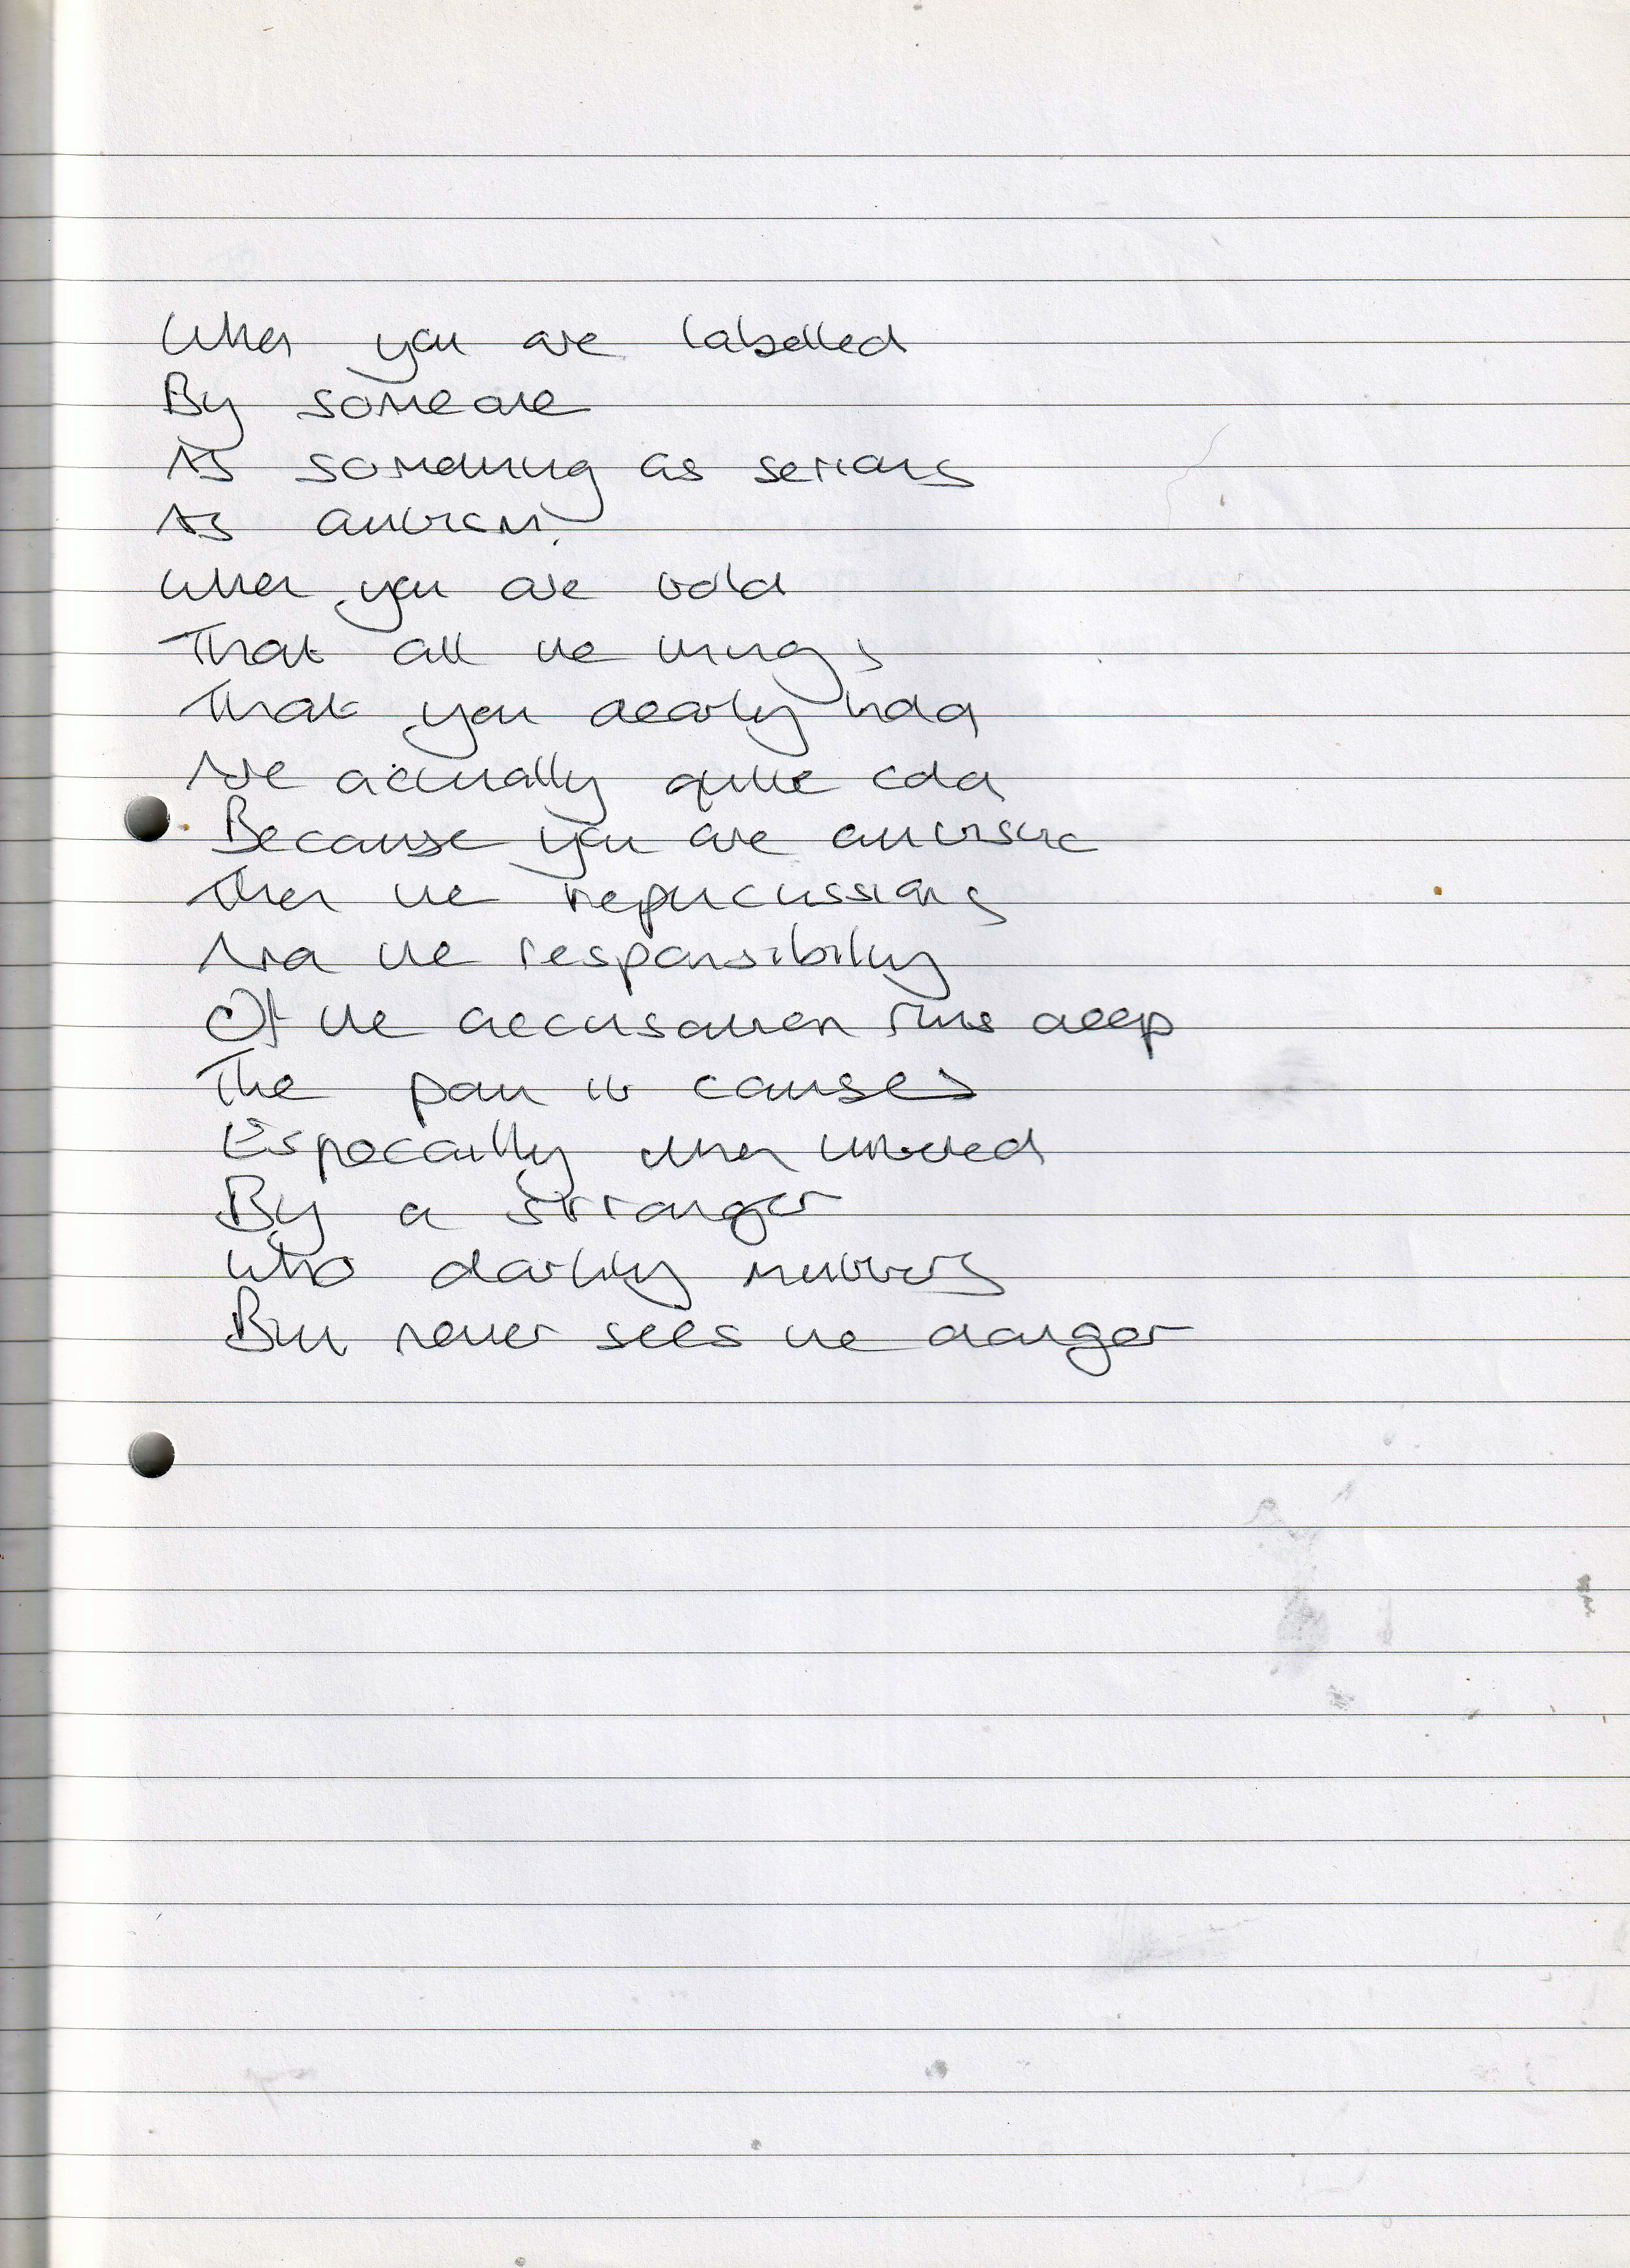 When you are labelled
By someone
As something as serious
As autism.
When you are told
That all the things
That you dearly hold
Are actually quite cold
Because you are autistic
Then the repucussions
And the responsibility
Of the accusation runs deep
The pain it causes
Especailly when uttered
By a stranger
Who darkly mutters
But never sees the danger